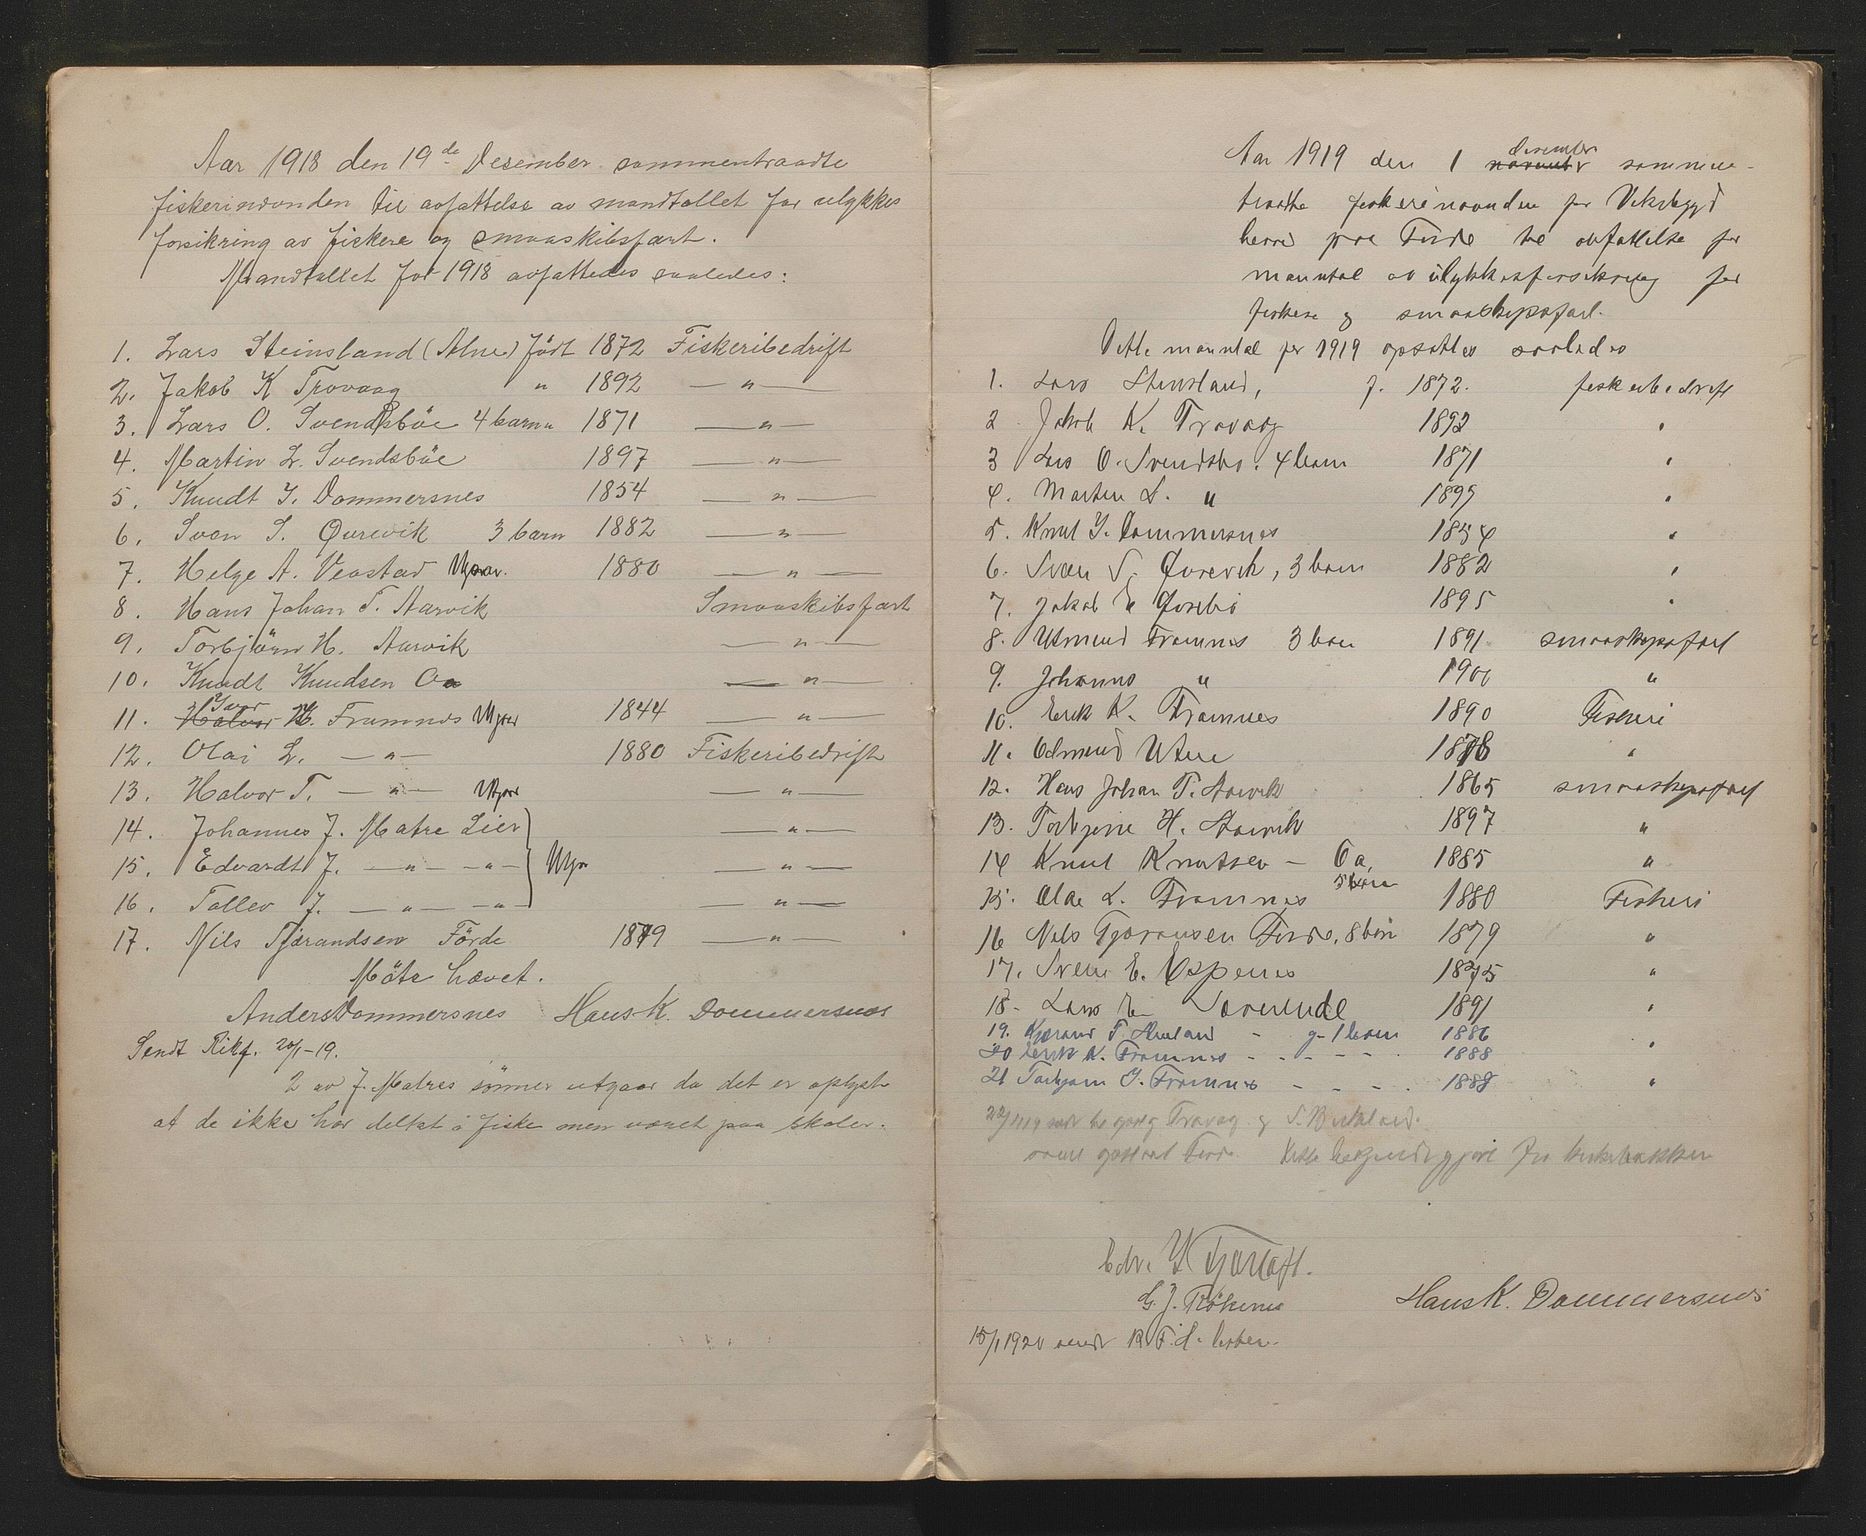 Aar 1918 den 19de Desember sammentraadte
fiskerinevnden til avfattelse av mandtallet for ulykkes
forsikring av fiskere og smaaskibsfart.
Mandtallet for 1918 avfattedes saaledes:
1. Lars Steinsland (Alne) födt 1872 Fiskeribedrift
2. Jakob K Trovaag " 1892 — " —
3. Lars O. Svendsböe 4 barn 1871 — " —
4. Martin L. Svendsböe 1897 — " —
5. Knudt J. Dommersnes 1854 — " —
6. Sven S. Qvrevik 3 barn 1882 — " —
7. Helge A. Veastad Utgaar. 1880 — " —
8. Hans Johan T. Aarvik Smaaskibsfart
9. Torbjörn H. Aarvik — " —
10. Knudt Knudsen Oa — " —
11. H. Framnes Utgaar 1844 — " —
12. Olai L. — " — 1880 Fiskeribedrift
13. Halvor T. — " — Utgaar — " —
14. Johannes J. Matre Lier — " —
15. Edvardt J. — " — — " — Utgaar — " —
16. Tollev J. — " — — " — — " —
17. Nils Tjærandsen Förde 1879 — " —
Möte hævet.
Anders Dommersnes Hans K. Dommersnes
Sendt Rikf. 20/1-19.
2 av J. Matres sönner utgaar da det er oplyst
at de ikke har deltat i fiske men været paa skoler.
Aar 1919 den 1 november desember sammen-
traatte fiskerinevnden for Vikebygd
herred paa Förde til avfattelse for
manntal av ulykkesforsikring for
fiskere og smaaskipsfart.
Dette manntal for 1919 opsattes saaledes
1. Lars Stensland, f. 1872. fiskeribedrift
2. Jakob K. Trovaag 1892 "
3 Lars O. Svendsbø. 4 barn 1871 "
4. Martin L. " 1899 "
5. Knut J. Dommersnes 1854 "
6. Sven S. Qvrevik, 3 barn 1882 "
7. Jakob E 1895 "
8. Framnes 3 barn 1891 smaaskipsfart
9. Johannes " 1900 "
10. Erik K. Framnes 1890 Fiskeri
11. Edmund Utne 1876 "
12. Hans Johan T. Aarvik 1865 smaaskipsfart
13. Torbjørn H. Aarvik 1897 "
14 Knut Knutsen – Oa 1885 "
15. Olai L. Framnes 5 barn 1880 Fiskeri
16 Nils Tjæransen Førde, 8 barn 1879 "
17. Sven E. Espenes 1875 "
18. Lars E. 1891 "
19. T. - g - 1 barn 1886
20 Erik K. Framnes - - - - 1888 "
21 Torbjørn J. Framnes - - - 1888 "
Trovaag og S. Birkeland.
samt opslaat Førde. Dette bekjendtgjort fra kirkebakken
Edv.
G. J. Rökenes Hans K. Dommersnes
15/1 1920 sendt R.F.